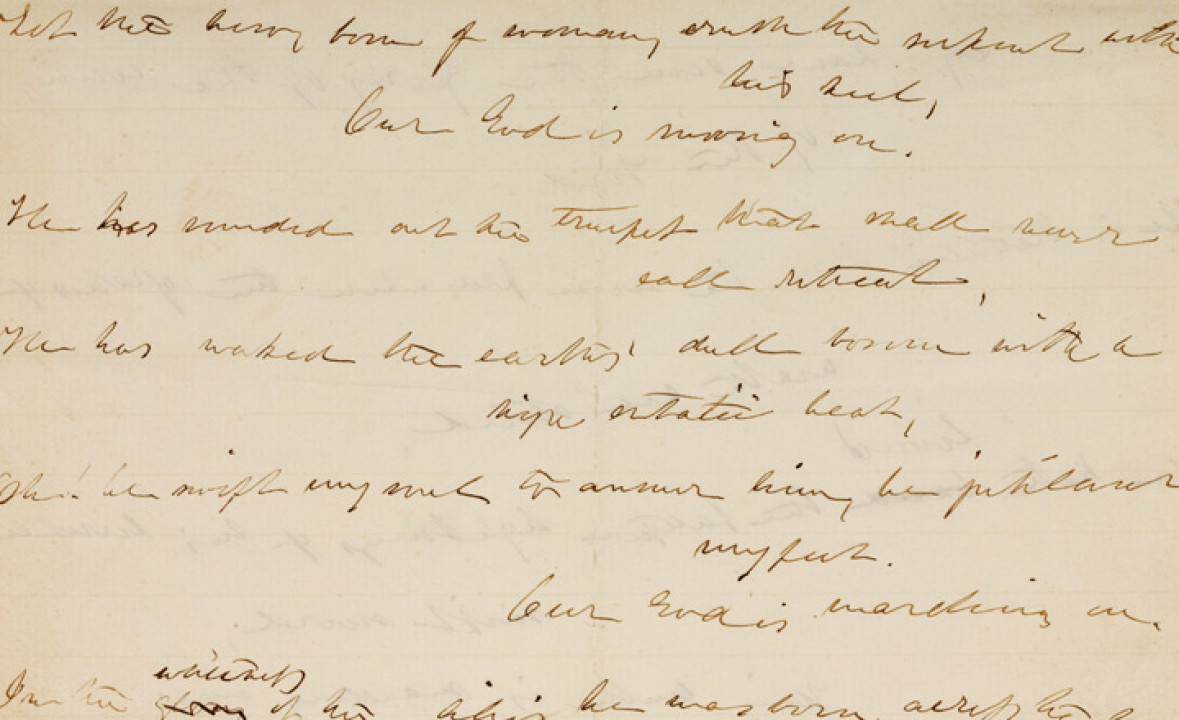 Let the hero, born of woman, crush the serpent with
his heel,
Our God is moving on.
He has sounded out the trumpet that shall never
call retreat,
He has waked the earth's dull bosom with a
high ecstatic beat,
Oh! be swift my soul to answer him, be jubilant
my feet.
Our God is marching on.
whiteness
In the glory of the lilies he was born, across the